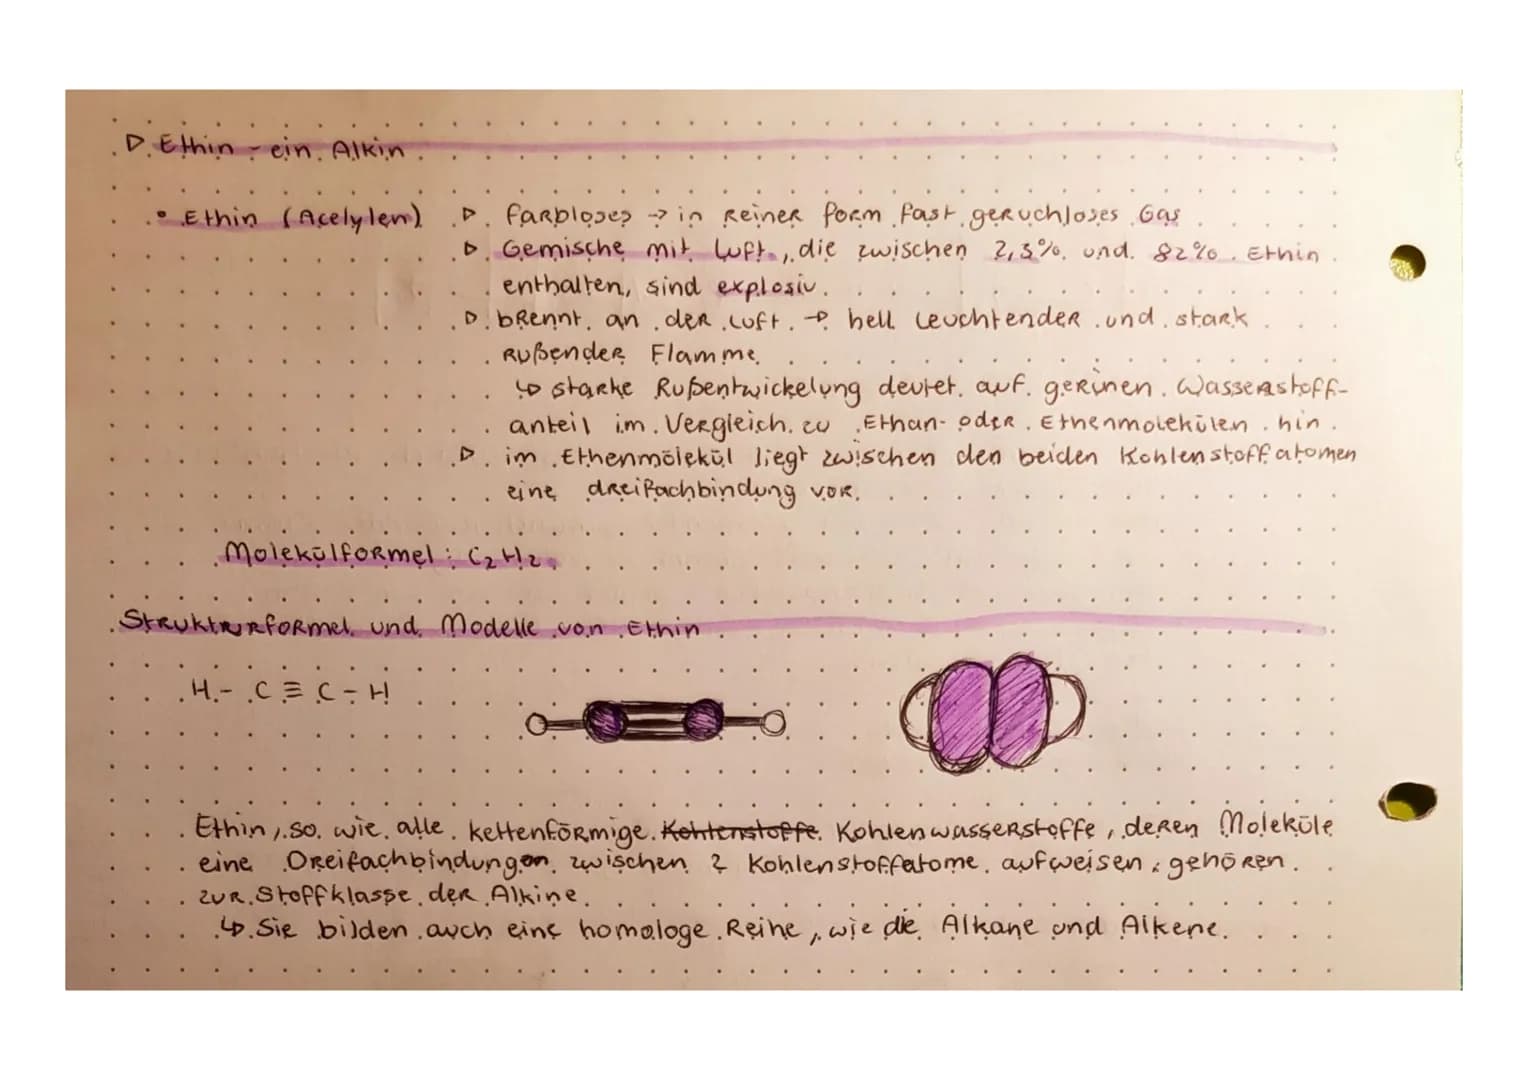 ▷ Ethin - ein Alkin
• Ethin (Acelylen) ▷ farbloses → in reiner form fast geruchloses Gas
▷ Gemische mit Luft, die zwischen 2,3% und 82% Ethin
enthalten, sind explosiv.
▷ brennt an der Luft → hell leuchtender und stark
rußender Flamme.
↳ starke Rußentwickelung deutet auf gerinen Wasserstoff-
anteil im Vergleich zu Ethan- oder Ethenmolekülen hin.
▷ im Ethenmolekül liegt zwischen den beiden Kohlenstoffatomen
eine dreifachbindung vor.
Molekülformel: C₂H₂
Strukturformel und Modelle von Ethin
H - C ≡ C - H
Ethin, so wie alle kettenförmige Kohlenstoffe Kohlenwasserstoffe, deren Moleküle
eine Dreifachbindungen zwischen 2 Kohlenstoffatome aufweisen, gehören
zur Stoffklasse der Alkine.
↳ Sie bilden auch eine homologe Reihe, wie die Alkane und Alkene.